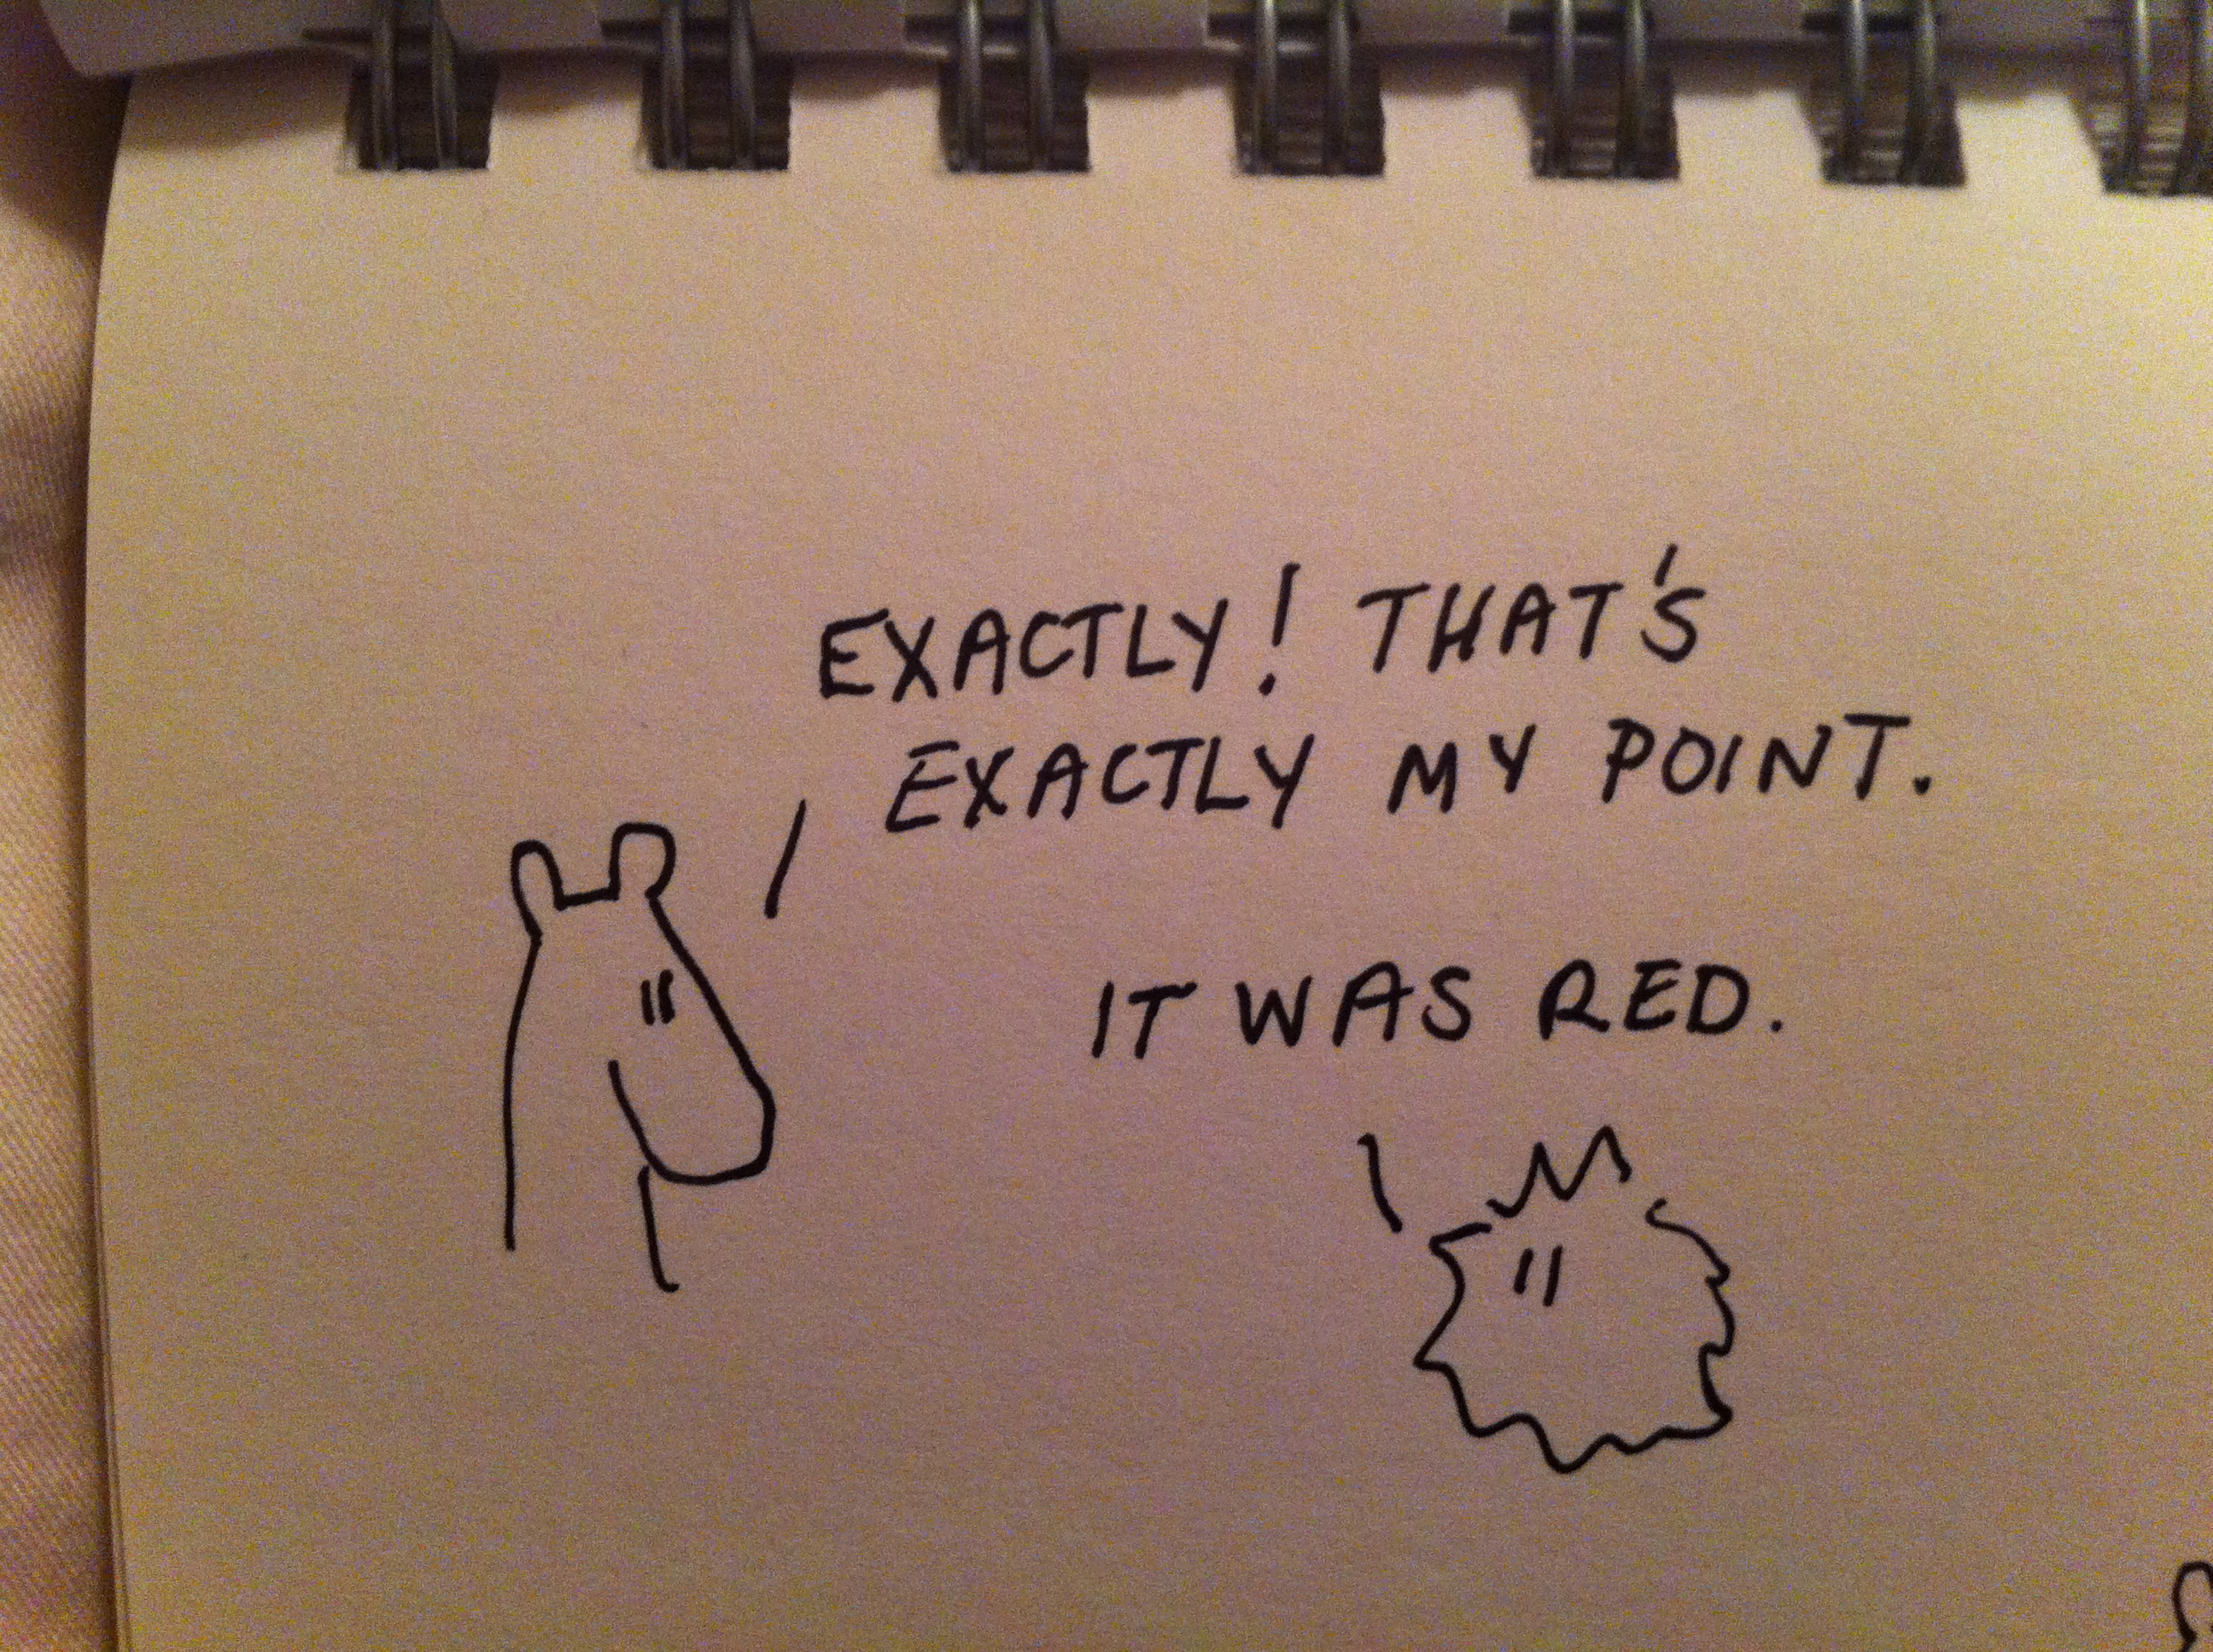 EXACTLY! THAT'S
EXACTLY MY POINT.
IT WAS RED.